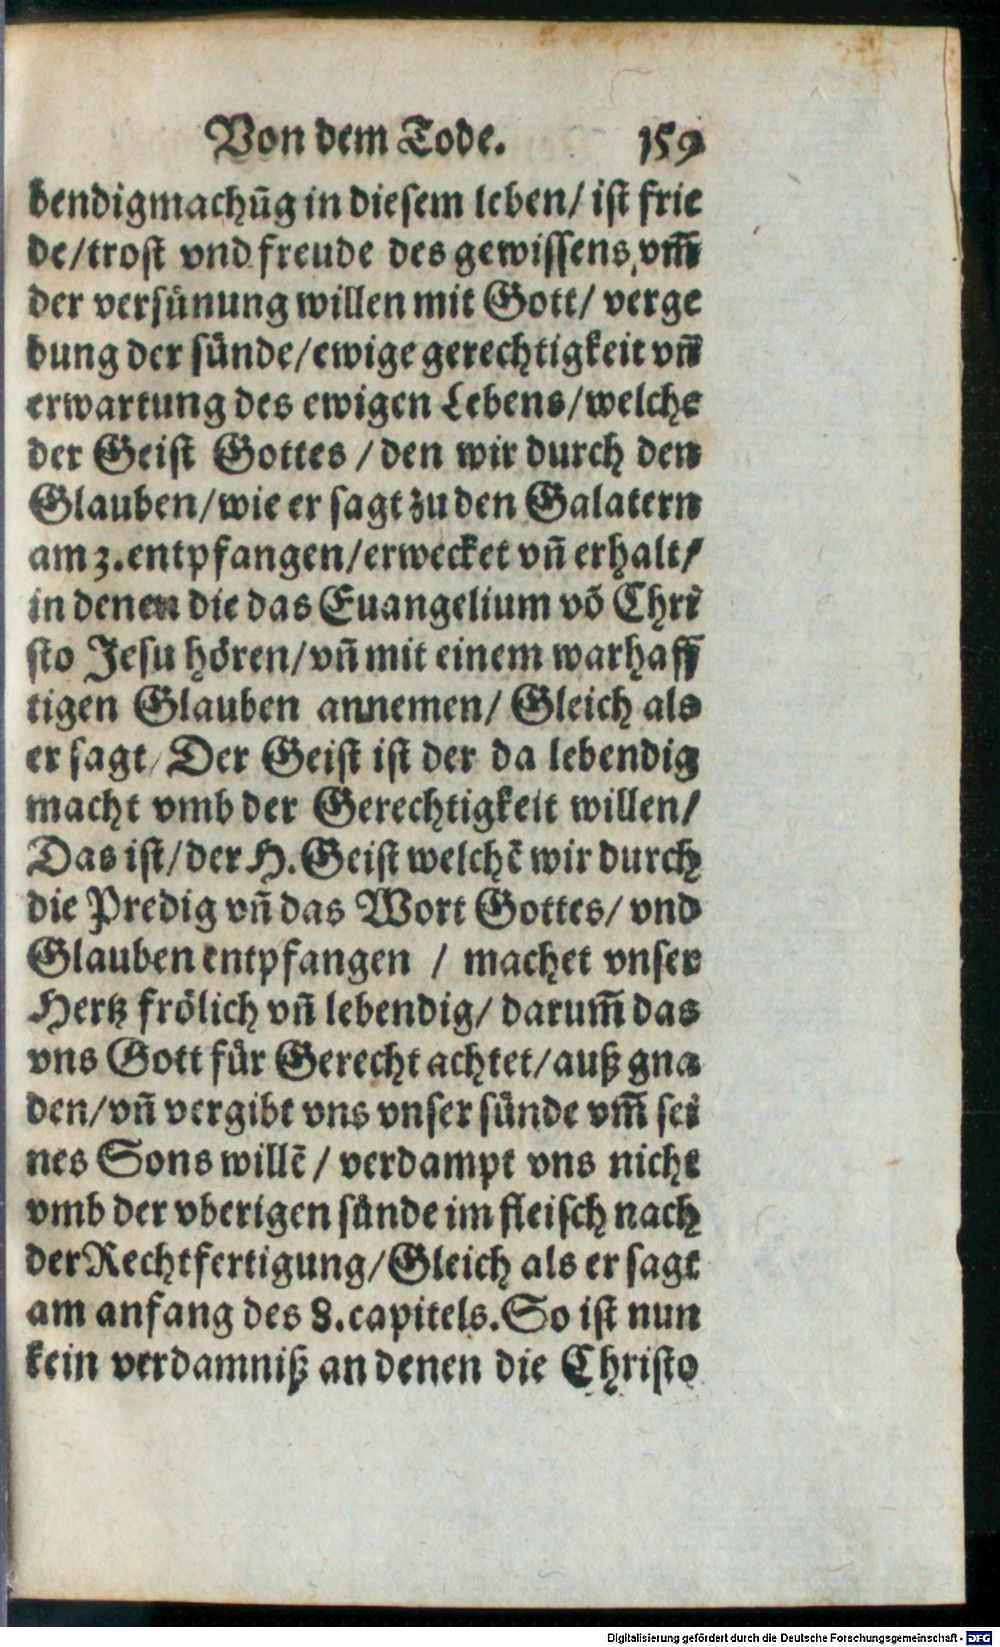 Von dem Tode. 159
bendigmachūg in diesem leben/ ist frie
de/trost vnd freude des gewissens, vm̄
der versünung willen mit Gott/ verge
bung der sünde/ewige gerechtigkeit vn̄
erwartung des ewigen Lebens/welche
der Geist Gottes /den wir durch den
Glauben/wie er sagt zu den Galatern
am 3.entpfangen/erwecket vn̄ erhalt/
in denen die das Euangelium vō Chri
sto Jesu hören/vn̄ mit einem warhaff
tigen Glauben annemen/ Gleich als
er sagt/ Der Geist ist der da lebendig
macht vmb der Gerechtigkeit willen/
Das ist/der H. Geist welchē wir durch
die Predig vn̄ das Wort Gottes/ vnd
Glauben entpfangen / machet vnser
Hertz frölich vn̄ lebendig/ darum̄ das
vns Gott für Gerecht achtet/auß gna
den/vn̄ vergibt vns vnser sünde vm̄ sei
nes Sons willē/ verdampt vns nicht
vmb der vberigen sünde im fleisch nach
der Rechtfertigung/Gleich als er sagt
am anfang des 8.capitels. So ist nun
kein verdamniß an denen die Christo
Digitalisierung gefördert durch die Deutsche Forschungsgemeinschaft - DFG